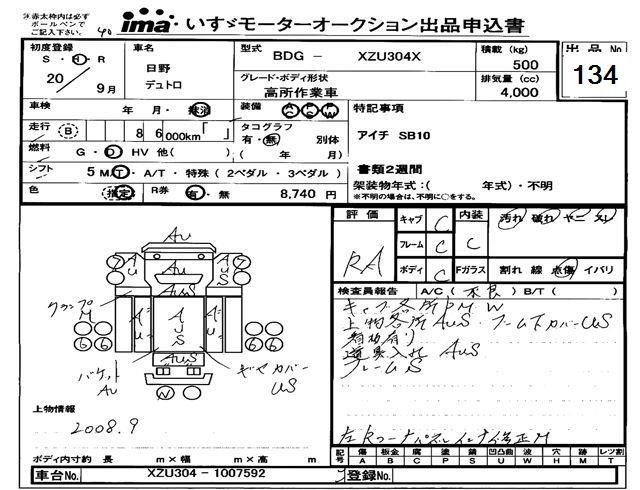 ※赤太枠内は必ず
ボールペンで
ご記入下さい。
40
ima いすゞモーターオークション出品申込書
出品No
134
初度登録
S・H・R
20年
9月
車名
日野
デュトロ
型式
BDG － XZU304X
グレード・ボディ形状
高所作業車
積載 (kg)
500
排気量 (cc)
4,000
車検
年・月・抹消
装備
AC PS PW
走行 B 86,000km「 」
タコグラフ
有・無 別体
( 年 月)
燃料 G・D HV 他( )
シフト 5 MT・A/T・特殊 (2ペダル・3ペダル)
色 (指定) R券 有・無 8,740 円
特記事項
アイチ SB10
書類2週間
架装物年式：( 年式)・不明
※不明の場合は、不明に○をする。
評価
RA
キャブ C
フレーム C
ボディ C
内装
C
汚れ 破れ ヤニ スレ
Fガラス 割れ 線 点傷 イバリ
検査員報告 A/C ( 不良 ) B/T ( )
キャブ各所PMW
上物各所AUS・アーム下カバーUS
道具入れ AUS
フレームS
AU
7
7
AUS
AUS
クランプ
M
AU
AUS
AU
6 6
6 6
AUS
バケット
AU
ギヤカバー
US
W
上物情報
2008.9
ボディ内寸約 長 m×幅 m×高 m
記号
傷 凹 腐 塗 錆 凹凸曲 波 穴 跡 レツ割
A B C P S U W H M T
車台No. XZU304－1007592
登録No.